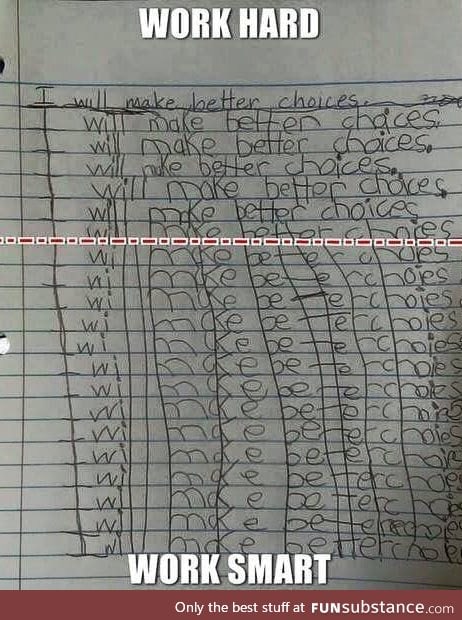 WORK HARD
I will make better choices.
I will make better choices.
I will make better choices.
I will make better choices.
I will make better choices
I will make better choices
I will make better choies
I will make better choies
I will make better choies
I will make better choies
I will make better choies
I will make better choies
I will make better choies
I will make better choies
I will make better choies
I will make better choies
I will make better
I will make better
I will make better
I will make better
I will make better
WORK SMART
Only the best stuff at FUNsubstance.com